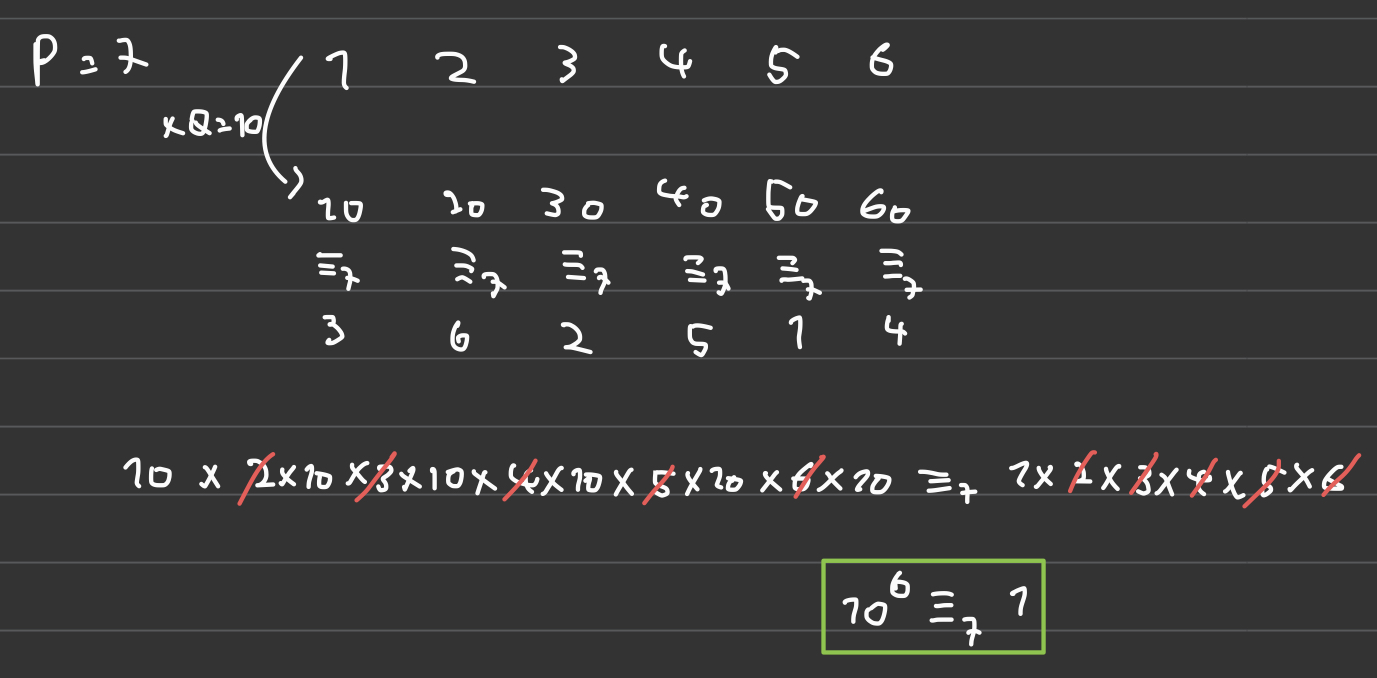 P = 7 1 2 3 4 5 6
×Q=10
10 20 30 40 50 60
≡₇ ≡₇ ≡₇ ≡₇ ≡₇ ≡₇
3 6 2 5 1 4
10 × 2×10 ×3×10× 4×10× 5×10 ×6×10 ≡₇ 1× 2× 3×4×5×6
10⁶ ≡₇ 1